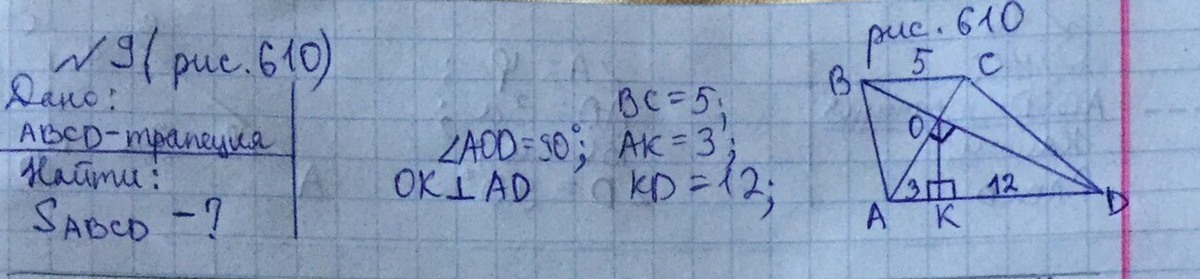 № 9 ( рис. 610)
Дано:
ABCD-трапеция
Найти:
SABCD - ?
BC = 5;
∠AOD = 90°; AK = 3;
OK ⊥ AD KD = 12;
рис. 610
5
B C
O
3 12
A K D